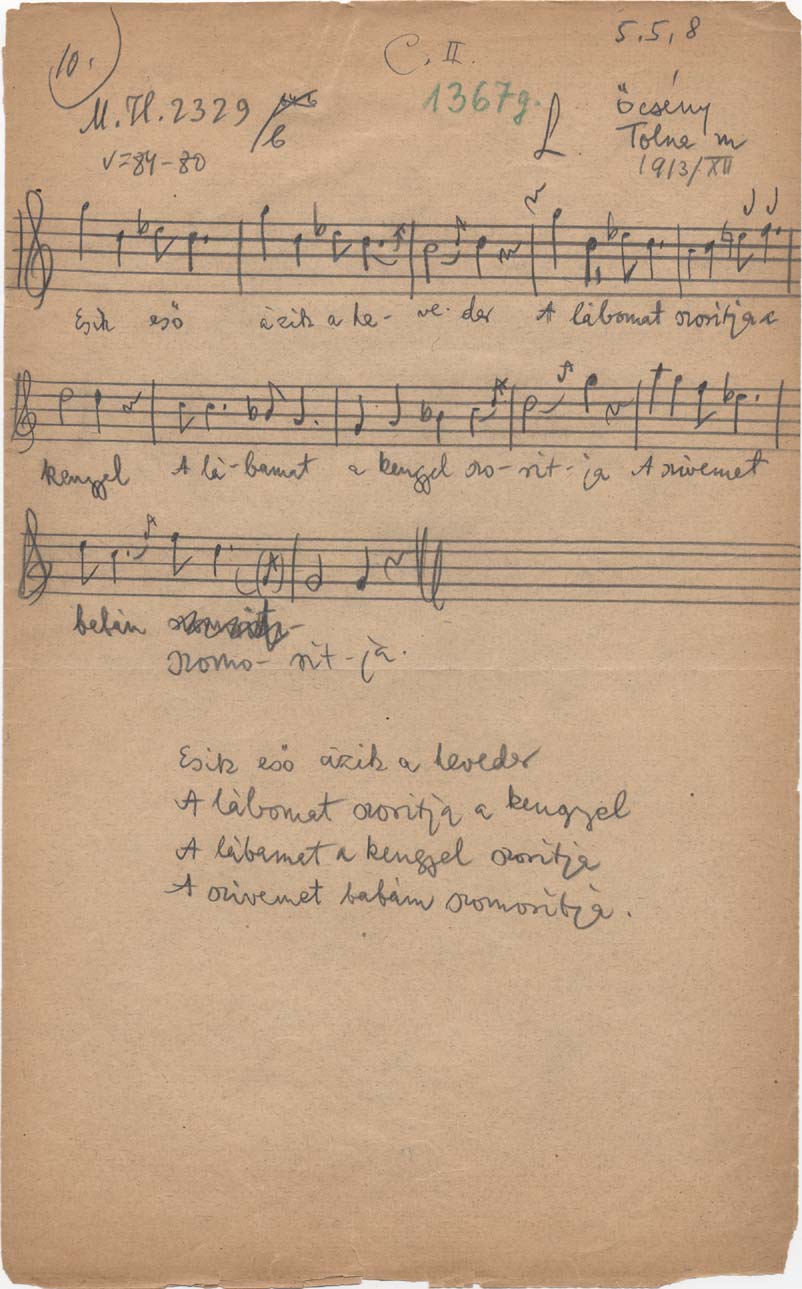 10.
C. II.
5, 5, 8
M.H. 2329 / b
1367g.
L.
Őcsény
Tolna m
1913/XII
v=84-80
Esik eső ázik a he- ve- der A lábomat szoritja a
kengyel A lá-bamat a kengyel szo-rit-ja A szivemet
babám
szomo-rit-ja.
Esik eső ázik a heveder
A lábomat szoritja a kengyel
A lábamat a kengyel szoritja
A szivemet babám szomoritja.